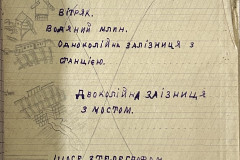 ВІТРЯК.
ВОДЯНИЙ МЛИН.
ОДНОКОЛІЙНА ЗАЛІЗНИЦЯ З
СТАНЦІЄЮ.
ДВОКОЛІЙНА ЗАЛІЗНИЦЯ
З МОСТОМ.